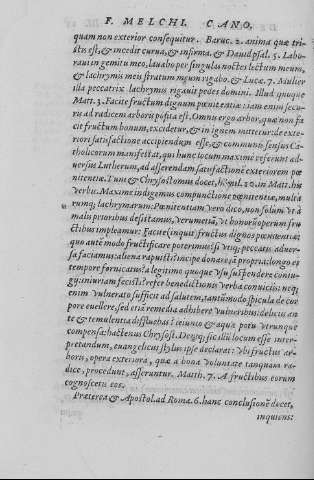 F. MELCHI. CANO,
quam non exterior consequitur. Baruc. 2. anima quæ tri-
stis est, & incedit curua, & infirma. & Dauid psal. 5. Labo-
raui in gemitu meo, lauabo per singulas noctes lectum meum,
& lachrymis meis stratum meum rigabo. & Lucæ. 7. Mulier
illa peccatrix lachrymis rigauit pedes domini. Illud quoque
Matt. 3. Facite fructum dignum pœnitentiæ: iam enim secu-
ris ad radicem arboris posita est. Omnis ergo arbor, quæ non fa
cit fructum bonum, excidetur, & in ignem mittetur: de exte-
riori satisfactione accipiendum esse, & communis sensus Ca-
tholicorum manifestat, qui hunc locum maxime referunt ad-
uersus Lutherum, ad asserendam satisfactionem exteriorem pœ
nitentiæ. Tum & Chrysostomus docet, homil. 10. in Matt. his
verbis. Maxime indigemus compunctione pœnitentiæ, multa
rumque lachrymarum. Pœnitentiam vero dico, non solum vt à
malis prioribus desistamus, verumetiam, vt bonorum operum fru
ctibus impleamur: Facite (inquit) fructus dignos pœnitentiæ:
quo autem modo fructificare poterimus? si vtique peccatis aduer-
sa faciamus: aliena rapuisti? incipe donare iam propria: longo es
tempore fornicatus? a legitimo quoque vsu suspendere coniu-
gij: iniuriam fecisti? refer benedictionis verba conuicijs: neque
enim vulnerato sufficit ad salutem, tantummodo spicula de cor
pore euellere, sed etiam remedia adhibere vulneribus: delicijs an
te & temulentia diffluebas? ieiunio & aqua potu vtrunque
compensa: hactenus Chrysost. Denique, sic illum locum esse inter-
pretandum, euangelicus stylus ipse declarat: vbi fructus ar-
boris, opera exteriora, quæ a bona voluntate tanquam ra-
dice, procedunt, asseruntur. Matth. 7. A fructibus eorum
cognoscetis eos.
Præterea & Apostol. ad Roma. 6. hanc conclusionē docet,
inquiens: